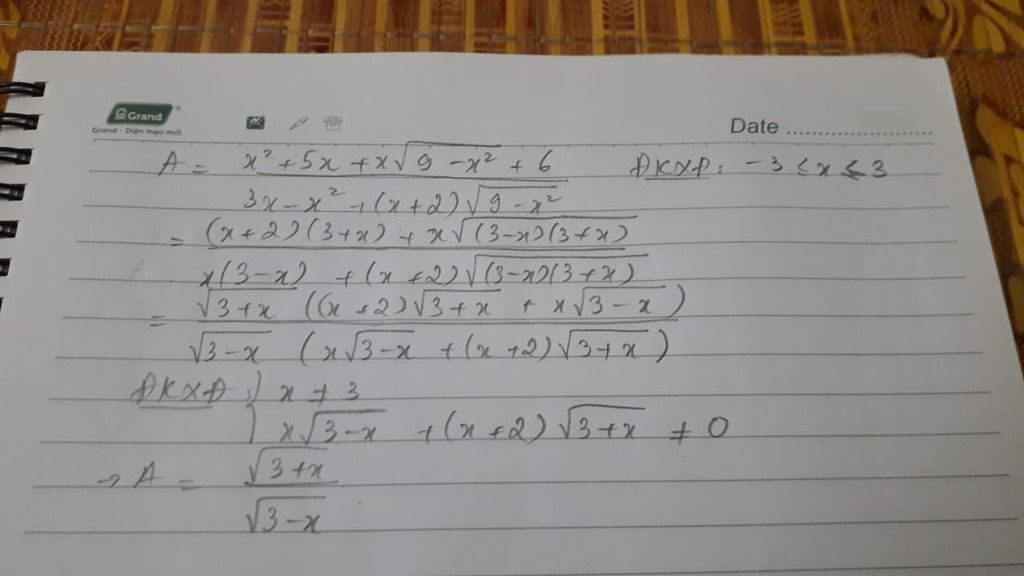 Grand
Grand - Diện mạo mới
Date ........................
A = (x² + 5x + x√(9 - x²) + 6) / (3x - x² + (x+2)√(9 - x²)) ĐKXĐ: -3 ≤ x ≤ 3
= ((x+2)(3+x) + x√((3-x)(3+x))) / (x(3-x) + (x+2)√((3-x)(3+x)))
= (√(3+x) ((x+2)√(3+x) + x√(3-x))) / (√(3-x) (x√(3-x) + (x+2)√(3+x)))
ĐKXĐ: x ≠ 3
x√(3-x) + (x+2)√(3+x) ≠ 0
→ A = √(3+x) / √(3-x)